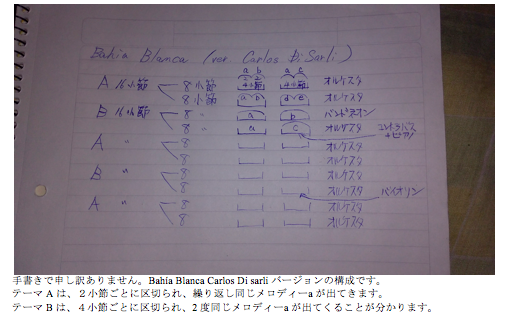 Bahia Blanca (ver Carlos Di Sarli)
a b a c
A 16小節 8小節 4小節 4小節 オルケスタ
8小節 a b d e オルケスタ
B 16小節 8 〃 a b バンドネオン
8 〃 a c オルケスタ コントラバス+ピアノ
A 〃 8 オルケスタ
8 オルケスタ
B 〃 8 オルケスタ
8 オルケスタ バイオリン
A 〃 8 オルケスタ
8 オルケスタ
手書きで申し訳ありません。Bahia Blanca Carlos Di sarli バージョンの構成です。
テーマ A は、２小節ごとに区切られ、繰り返し同じメロディーaが出てきます。
テーマ B は、４小節ごとに区切られ、2 度同じメロディーaが出てくることが分かります。